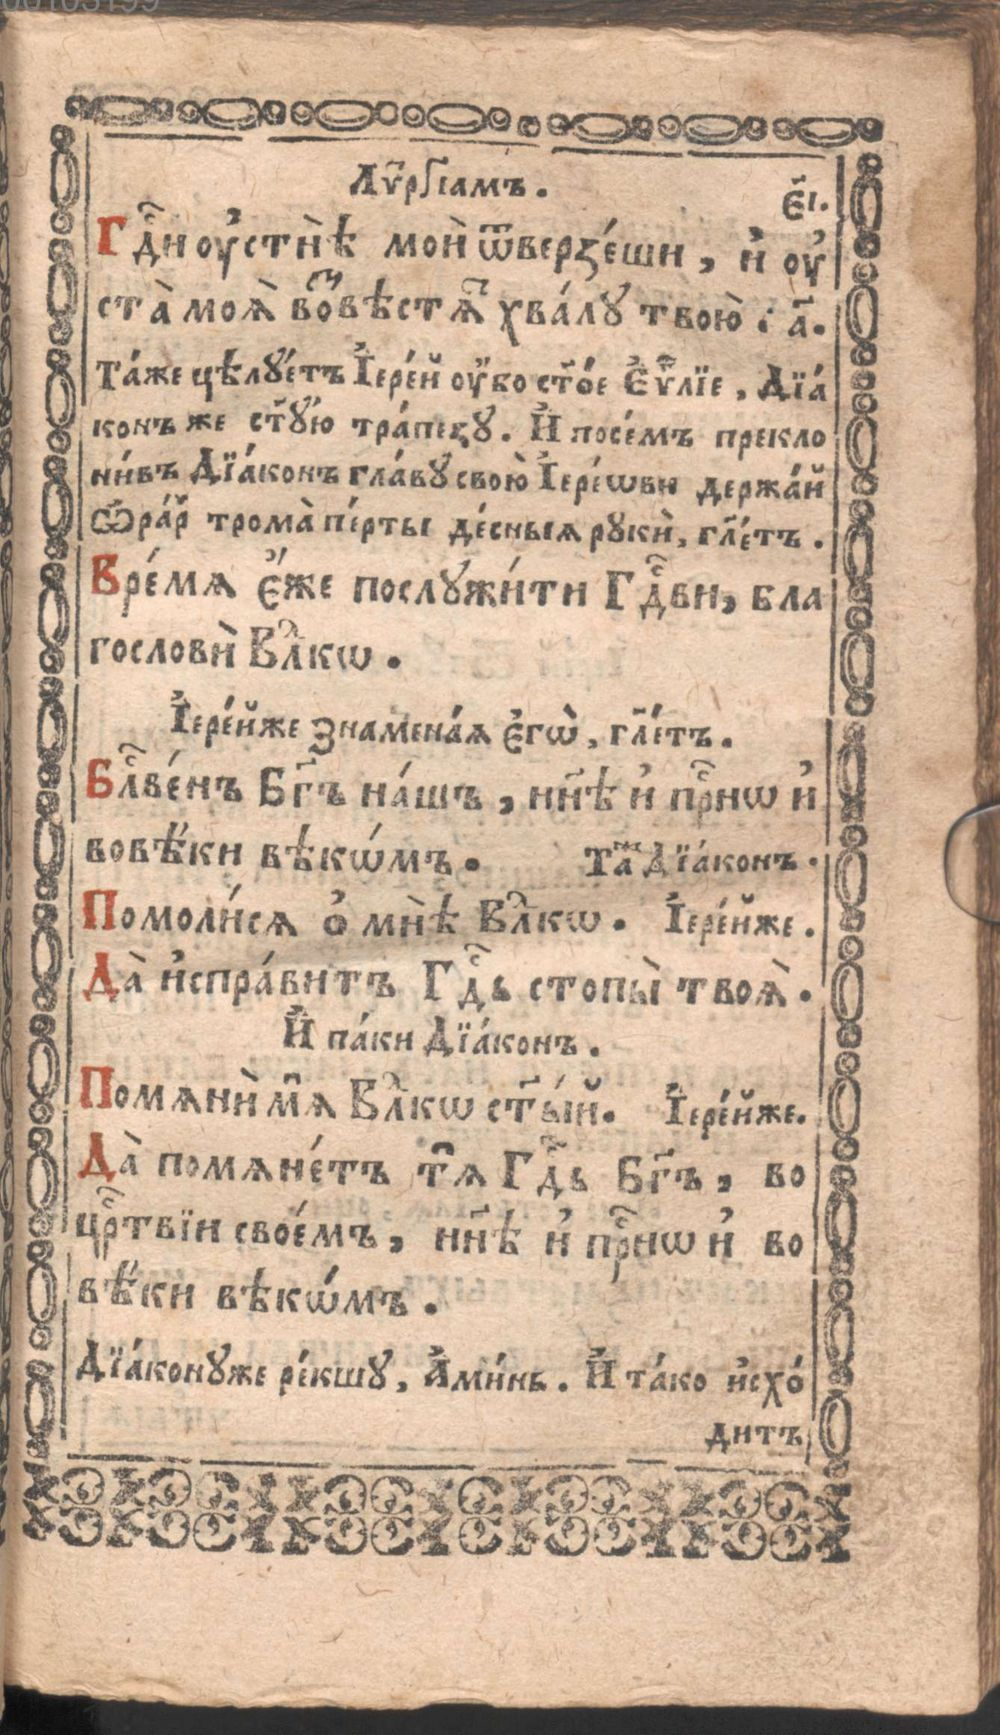 00103199
Лѵ҃ргїамъ.
є҃і.
Гдⷭ҇и ᲂу҆стнѣ̀ моѝ ѿверзе́ши, и҆ ᲂу҆
ста̀ моѧ̀ воⷥ҇вѣстѧ́тъ хва́лꙋ твою̀. а҃.
Та́же цѣлꙋ́етъ І҆ере́й ᲂу҆́бо ст҃о́е Є҆ѵⷢ҇лїе, Дїа́
конъ же ст҃ꙋ́ю тра́пезꙋ. И҆ посе́мъ прекло
ни́въ Дїа́конъ гла́вꙋ свою̀ І҆ере́ѡви держа́й
Ѡ҆ра́р҄ трома̀ пе́рты де́сныѧ рꙋкѝ, гл҃е́тъ.
Вре́мѧ є҆́же послꙋжи́ти Гдⷭ҇ви, бла
гословѝ Влⷣкѡ.
І҆ере́йже знамена́ѧ є҆гѡ̀, гл҃е́тъ.
Блⷭ҇ве́нъ Бг҃ъ на́шъ, нн҃ѣ и҆ прⷭ҇нѡ и҆
вовѣ́ки вѣкѡ́мъ. Таⷤ Дїа́конъ.
Помоли́сѧ ѻ҆ мнѣ̀ Влⷣкѡ. І҆ере́йже.
Да̀ и҆спра́витъ Гдⷭ҇ь стопы̀ твоѧ̀.
И҆ па́ки Дїа́конъ.
Помѧнѝ мѧ Влⷣкѡ ст҃ы́й. І҆ере́йже.
Да̀ помѧне́тъ тѧ Гдⷭ҇ь Бг҃ъ, во
црⷭ҇твїи свое́мъ, нн҃ѣ и҆ прⷭ҇нѡ и҆ во
вѣ́ки вѣкѡ́мъ.
Дїа́конꙋже ре́кшꙋ, А҆ми́нь. И҆ та́ко и҆схо́
дитъ